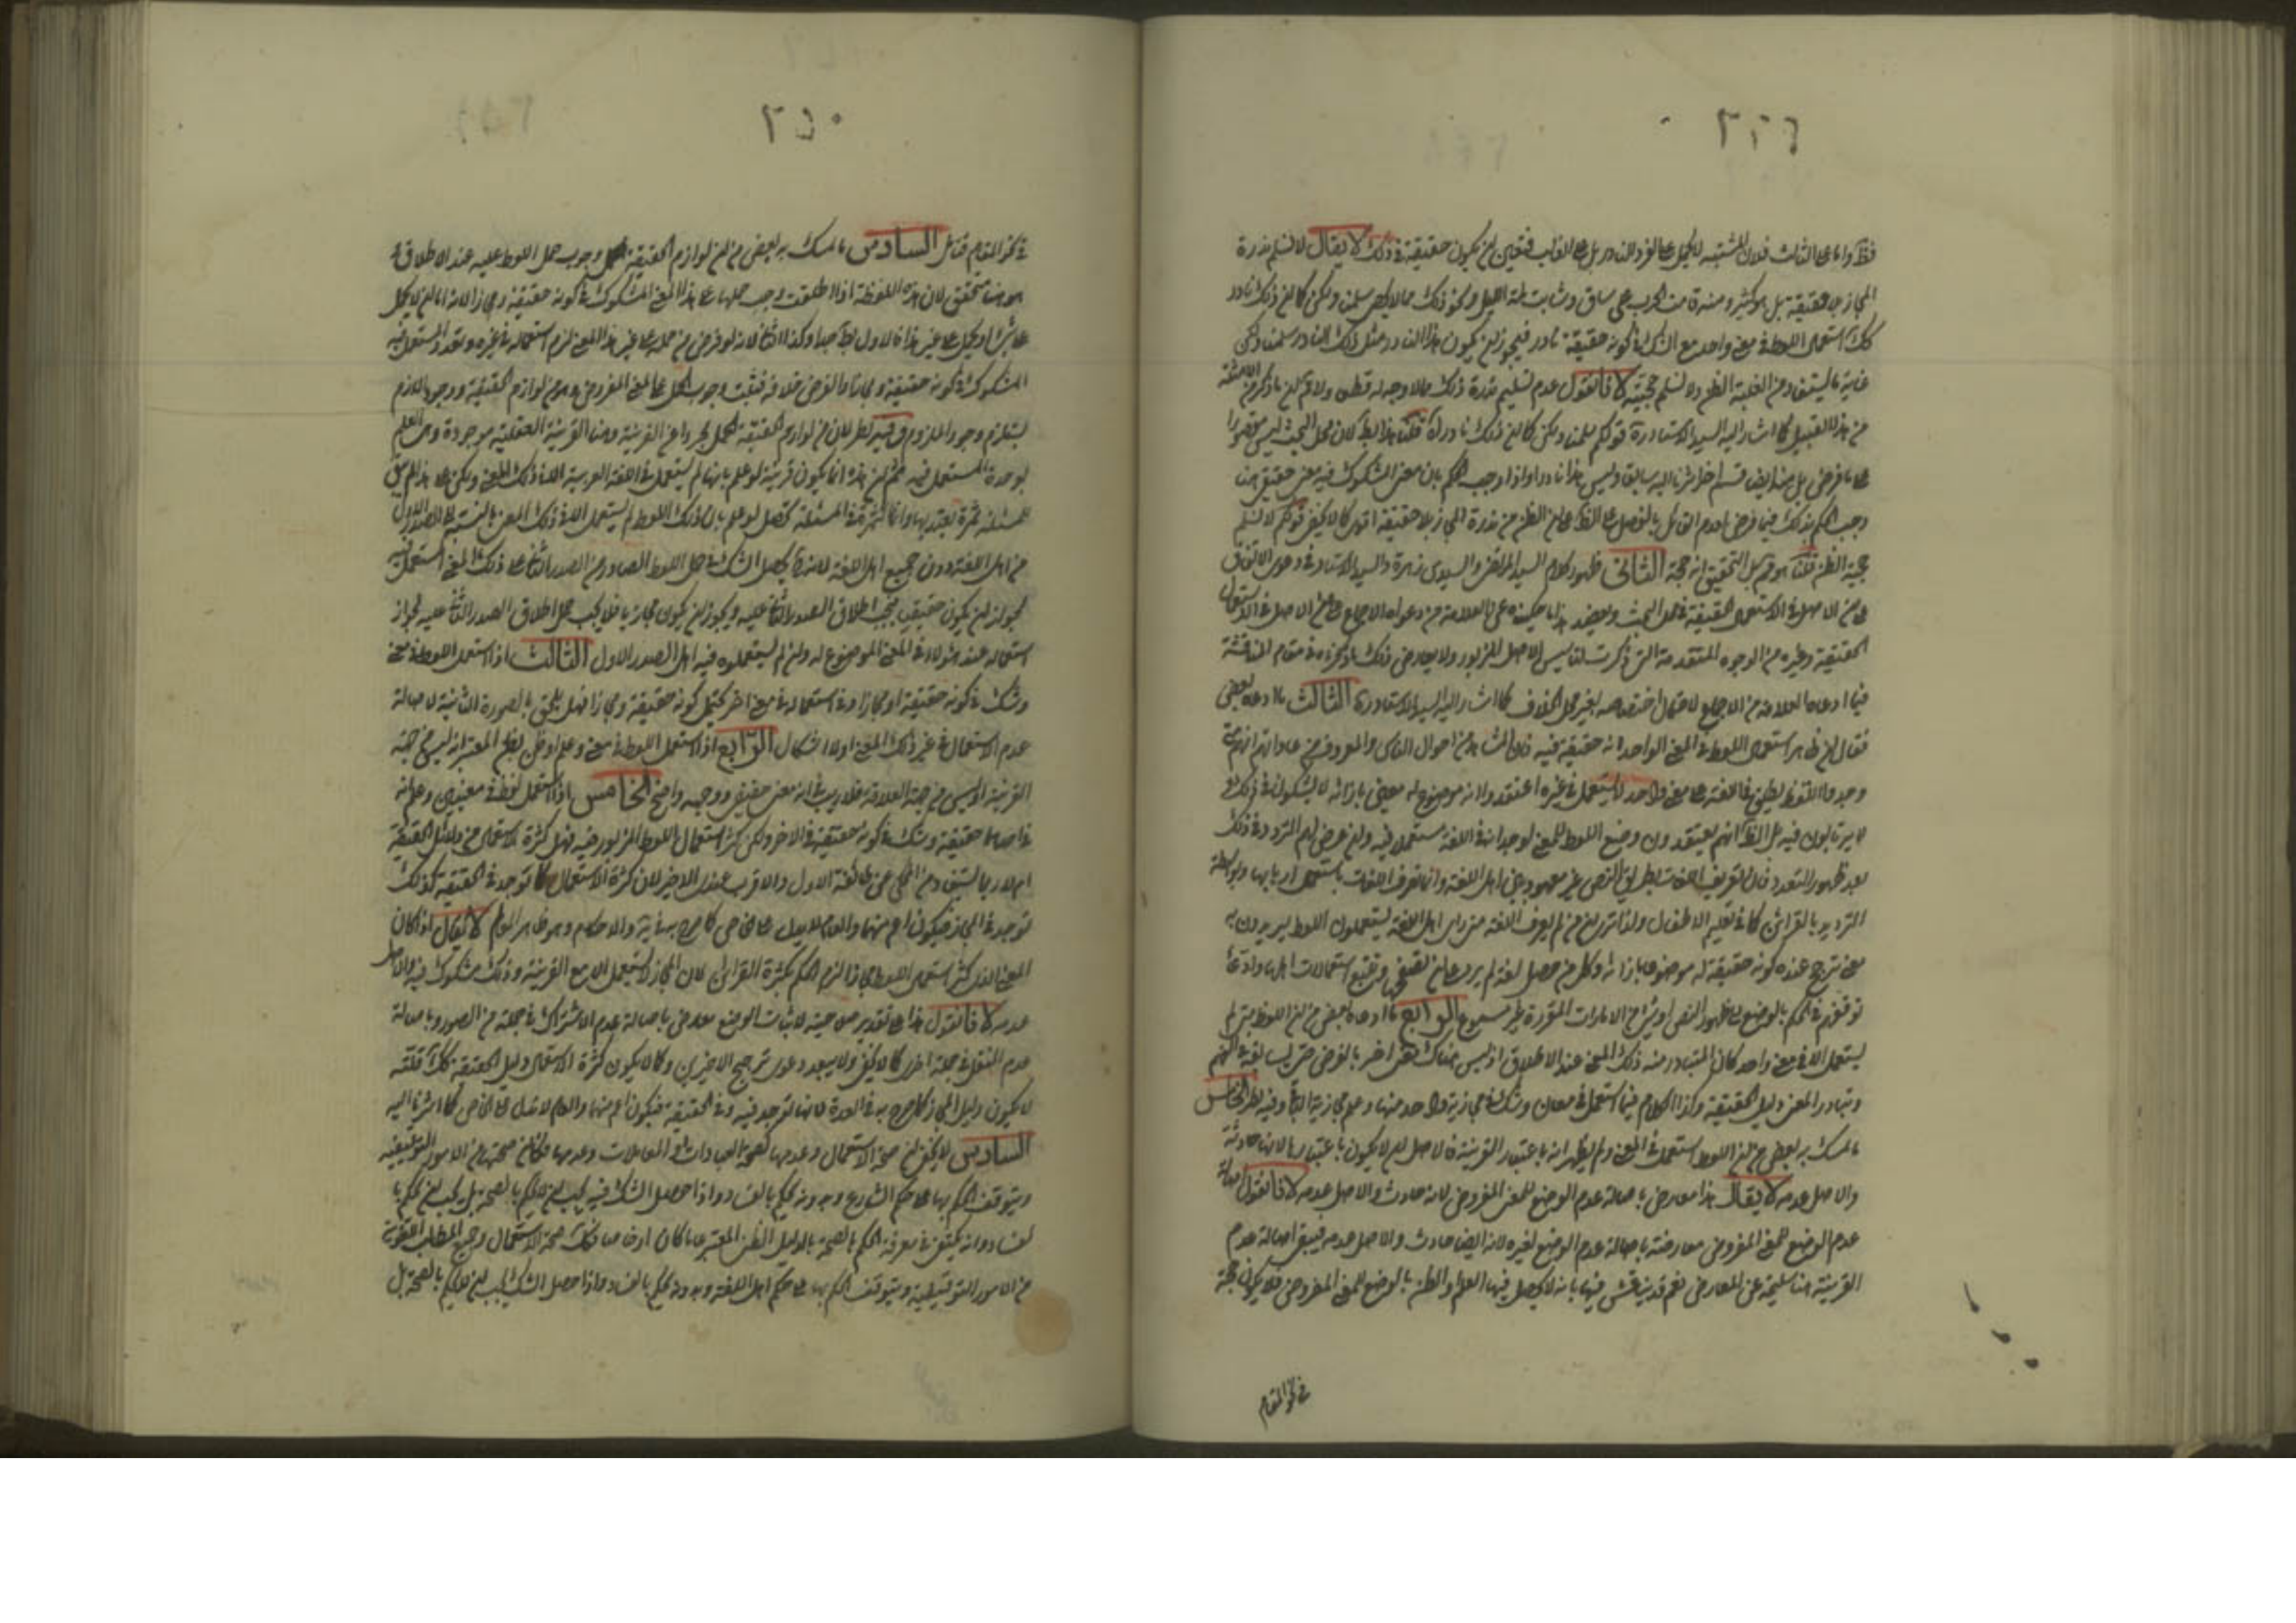 فظ واما على الثالث فلان المشتبه لا يحمل على الفرد النادر بل على الغالب فتعين ان يكون حقيقة في ذلك لا يقال لا نسلم ندرة
المجاز بلا حقيقة بل هو كثير ومنه قامت الحرب على ساق وشابت لمة الليل ونحو ذلك مما لا يحصى سلمنا ولكن كما ان ذلك نادر
كك استعمال اللفظ في معنى واحد مع الشك في كونه حقيقة نادر فيجوز ان يكون هذا النادر مثل ذلك النادر سلمنا ولكن
غاية ما يستفاد من الغلبة الظن ولا نسلم حجيته لانا نقول عدم تسليم ندرة ذلك مما لا وجه له قطعا
من هذا القبيل كما اشار اليه السيد الاستاد ره قولكم سلمنا ولكن كما ان ذلك نادر اه قلنا هذا بط لان محل البحث ليس مقصورا
على ما فرض بل هنا ايضا قسم اخر اشرنا اليه سابقا وليس هذا نادرا واذا وجب الحكم بان معنى المشكوك فيه معنى حقيقي هنا
وجب الحكم بذلك فيما فرض لعدم القائل بالفصل على الظ على ان الظن من ندرة المجاز بلا حقيقة اقوى كما لا يخفى قولكم لا نسلم
حجية الظن قلنا هو قوى بل التحقيق انه حجة الثاني ظهور كلام السيد المرتضى والسيد بن زهرة والسيد الاستاد في دعوى الاتفاق
على ان الاصل في الاستعمال الحقيقة في محل البحث ويعضد هذا ما حكيناه عن العلامة من دعواه الاجماع على ان الاصل في الاستعمال
الحقيقة وغيره من الوجوه المتقدمة التي ذكرت لتاسيس الاصل المزبور ولا يعارض ذلك ما ذكره في مقام المناقشة
فيما ادعاه العلامة من الاجماع لاحتمال اختصاصه بغير محل الخلاف كما اشار اليه السيد الاستاد ره الثالث ما ادعاه بعض
فقال ان ظاهر استعمال اللفظ في المعنى الواحد انه حقيقة فيه فان الشاهد من احوال الناس والمعروف من عاداتهم انهم متى
وجدوا اللفظ يطلق في اللغة على معنى واحد لا يستعمل في غيره اعتقدوا انه موضوع له معين بازائه لا يشكون في ذلك و
لا يرتابون فيه بل الظ انهم يعتقدون وضع اللفظ للمعنى لوجدانه في اللغة مستعملا فيه وان عرض لهم التردد في ذلك
بعد ظهور التعدد فان تعريف اللغات بطريق النص غير معهود بين اهل اللغة وانما تعرف اللغات باستعمال اربابها وبواسطة
الترديد بالقرائن كما في تعليم الاطفال ولذا ترى ان من لم يعرف اللغة متى راى اهل اللغة يستعملون اللفظ يريدون به
معنى ترجح عنده كونه حقيقة له موضوعا بازائه وكل من حصل لغة لم يرد على ان تصفح وتتبع استعمالات اهلها وادعى
توقفهم في الحكم بالوضع على ظهور النص او شرح الامارات المقررة غير مسموع الرابع ما ادعاه بعض من ان اللفظ متى لم
يستعمل الا في معنى واحد كان المتبادر منه ذلك المعنى عند الاطلاق اذ ليس هناك معنى اخر بالفرض حتى يسابقه في الفهم
وتبادر المعنى دليل الحقيقة وكذا الكلام فيما استعمل في معان وشك في مجازية واحد منها وعلم مجازية الباقي وفيه نظر الخامس
ما تمسك به بعض من ان اللفظ استعمل في المعنى ولم يظهر انه باعتبار القرينة فالاصل ان لا يكون باعتبارها لانها حادثة
والاصل عدمه لا يقال هذا معارض باصالة عدم الوضع للمعنى المفروض لانه حادث والاصل عدمه لانا نقول اصالة
عدم الوضع للمعنى المفروض معارضة باصالة عدم الوضع لغيره لانه ايضا حادث والاصل عدمه فيبقى اصالة عدم
القرينة هنا سليمة عن المعارض نعم قد يناقش فيها بانه لا يحصل فيها العلم او الظن بالوضع للمعنى المفروض فلا يكون حجة
في نحو المقام
٢٥٠
في نحو المقام فتامل السادس ما تمسك به بعض من ان لوازم الحقيقة وجوب حمل اللفظ عليه عند الاطلاق و
هو هنا متحقق لان هذه اللفظة اذا اطلقت وجب حملها على هذا المعنى المشكوك في كونه حقيقة ومجازا لانه اما ان لا يحمل
على شئ او يحمل على غير هذا فالاول بط جدا وكذا الثاني لانه لو فرض من حمله على غير هذا المعنى لزم استعماله في غيره وتعدد المستعمل فيه
المشكوك في كونه حقيقة ومجازا والفرض خلافه فثبت وجوب الحمل على المعنى المفروض وهو من لوازم الحقيقة ووجود اللازم
يستلزم وجود الملزوم وفيه نظر لان من لوازم الحقيقة الحمل مجردا عن القرينة وهنا القرينة العقلية موجودة وهى العلم
بوحدة المستعمل فيه ثم ان هذه انما يكون قرينة لو علم بانها لم يستعمل في اللغة العربية الا في ذلك المعنى ولكن على هذا لم يبق
للمسئلة ثمرة يعتد بها وانما الثمرة في المسئلة تحصل لو علم بان ذلك اللفظ لم يستعمل الا في ذلك المعنى بالنسبة الى الصدر الاول
من اهل اللغة دون جميع اهل اللغة لانه ح يحصل الشك في حمل اللفظ الصادر من الصدر الثاني على ذلك المعنى المستعمل فيه
لجواز ان يكون حقيقيا فيجب اطلاق الصدر الثاني عليه ويجوز ان يكون مجازيا فلا يجب حمل اطلاق الصدر الثاني عليه لجواز
استعماله عند هؤلاء في المعنى الموضوع له وان لم يستعملوه فيه اهل الصدر الاول الثالث اذا استعمل اللفظ في معنى
وشك في كونه حقيقة او مجازا وفي استعماله في معنى اخر يحتمل كونه حقيقة ومجازا فهل يلحق بالصورة الثانية لاصالة
عدم الاستعمال في غير ذلك المعنى اولا اشكال الرابع اذا استعمل اللفظ في معنى وعلم او ظن بظن المعتبر انه ليس من جهة
القرينة او ليس من جهة العلاقة فلا ريب في انه معنى حقيقي ووجهه واضح الخامس اذا استعمل لفظ في معنيين وعلم انه
في احدهما حقيقة وشك في كونه حقيقة في الاخر ولكن كثر استعمال اللفظ المزبور فيه فهل كثرة الاستعمال من دلائل الحقيقة
ام لا ربما يستفاد من المحكى عن طائفة الاول والاقرب عندى الاخير لان كثرة الاستعمال كما توجد في الحقيقة كذلك
توجد في المجاز فيكون اعم منهما والعام لا يدل على الخاص كما صرح به في والاحكام وهو ظاهر لا يقال اذا كان
المعنى الذى كثر استعمال اللفظ مجازا لزم الحكم بكثرة القرائن لان المجاز لا يستعمل الا مع القرينة وذلك مشكوك فيه والاصل
عدمه لانا نقول هذا على تقدير صلاحيته لاثبات الوضع معارض باصالة عدم الاشتراك في جملة من الصور وباصالة
عدم النقل في جملة اخرى كما لا يخفى ولا يبعد دعوى ترجيح الاخيرين وكما لا يكون كثرة الاستعمال دليل الحقيقة كك قلته
لا يكون دليل المجاز كما صرح به في العدة لانها توجد فيه وفي الحقيقة فيكون اعم منهما والعام لا يدل على الخاص كما اشرنا اليه
السادس لا يخفى ان صحة الاستعمال وعدمها كصحة العبادات والمعاملات وعدمها فكما ان صحتها من الامور التوقيفية
ويتوقف الحكم بها على حكم الشارع وبدونه يحكم بالفساد واذا حصل الشك فيه يجب ان لا يحكم بالصحة بل يجب ان يحكم با
لفساد وانه يكتفى في معرفة الحكم بالصحة بالدليل الظنى المعتبر كك صحة الاستعمال وجميع المطالب اللغوية
من الامور التوقيفية ويتوقف الحكم بها على حكم اهل اللغة وبدونه يحكم بالفساد واذا حصل الشك يجب ان لا يحكم بالصحة بل